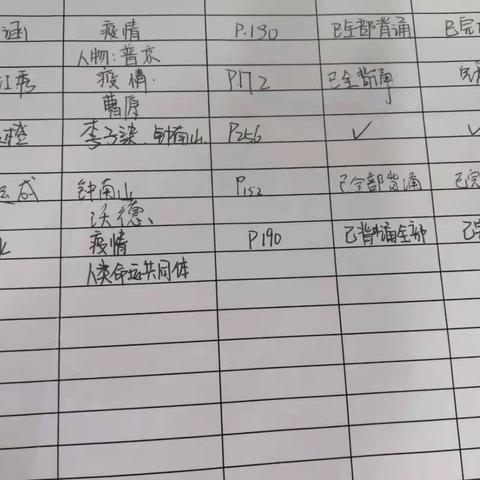 涵 疫情 P.130 已全部背诵 已完
人物:普京
江秀 疫情. P.172 已全背诵 完
曹原
橙 李子柒.钟南山. P256 ✓ ✓
成 钟南山 P152 已全部背诵 已完
沃德、
疫情 P.190 已背诵全部 已完
人类命运共同体